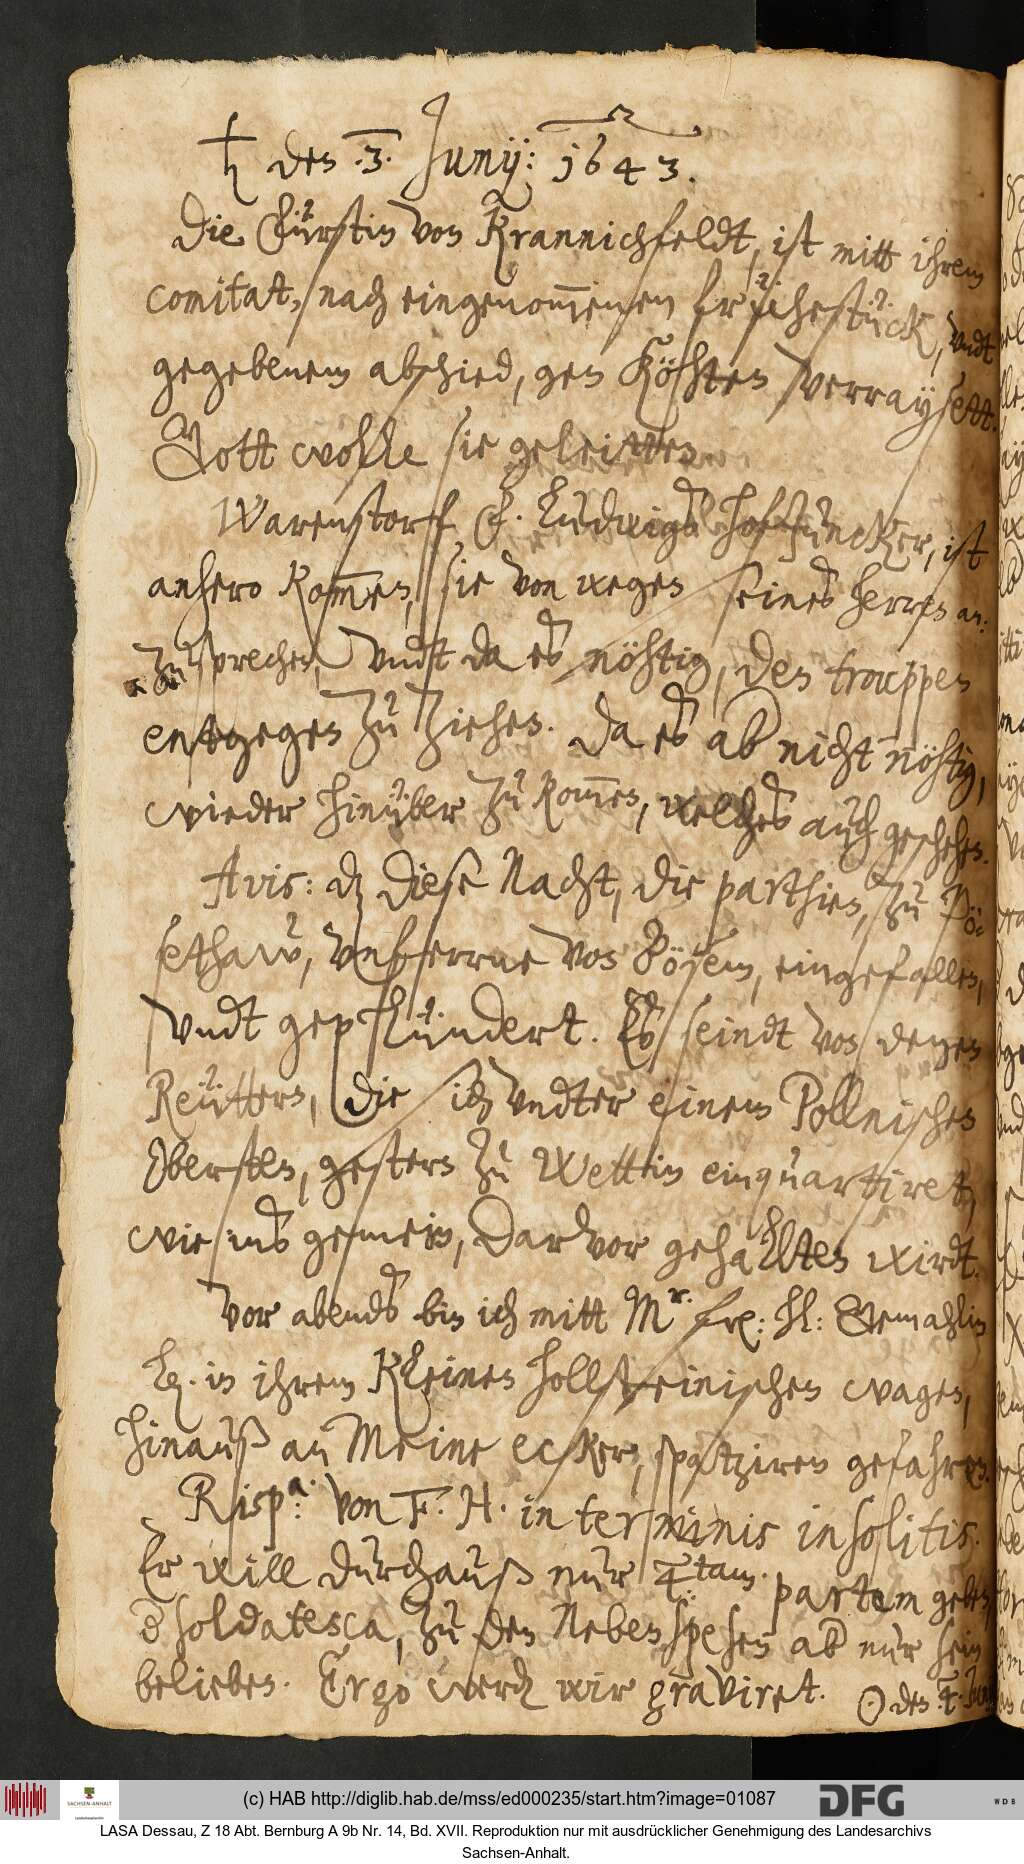 ♄ den .3. Junij: 1643.
Die Fürstin von Krannichfeldt, ist mitt ihrem
comitat, nach eingenom̄enem früehestück, vndt
gegebenem abschied, gen Köhten verraysett.
Gott wolle sie geleitten.
Warenstorf, F. Ludwigs hofjuncker, ist
anhero kom̄en, sie von wegen seines herren an-
zusprechen, vndt da es nöhtig, den trouppen
entgegen zu ziehen. Da es ab nicht nöhtig,
wieder hinüber zu kom̄en, welches auch geschehen.
Avis: dz diese Nacht, die parthien, zu Pö-
sethaw, vnferrne von Pösem, eingefallen,
vndt geplündert. Es seindt von denen
Reüttern, die sich vndter einem Pollnischen
Obersten, gestern zu Wettin einquartiret,
wie ins gemein, darvor gehalten wirdt.
Vor abends bin ich mitt Mr. frl: hl: Gemahlin
L. in ihrem kleinen hollsteinischen wagen,
hinauß an Meine ecker, spatziren gefahren.
Rispa: von F. H. in terminis insolitis.
Er will durchauß nur 4tam. partem geben,
d soldatesca, zu den Nebenspesen ab nur sein
belieben. Ergo werdn wir graviret. ☉ den 4. Juny
(c) HAB http://diglib.hab.de/mss/ed000235/start.htm?image=01087
SACHSEN-ANHALT
DFG
WDB
LASA Dessau, Z 18 Abt. Bernburg A 9b Nr. 14, Bd. XVII. Reproduktion nur mit ausdrücklicher Genehmigung des Landesarchivs
Sachsen-Anhalt.